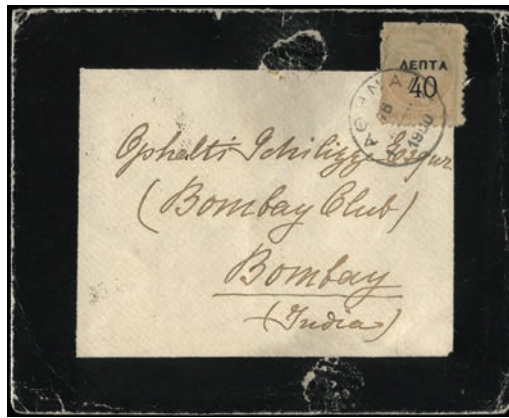 ΛΕΠΤΑ
40
ΑΘΗΝΑΙ
1900
Ophalti Schilizzi Esqur
(Bombay Club)
Bombay
(India)